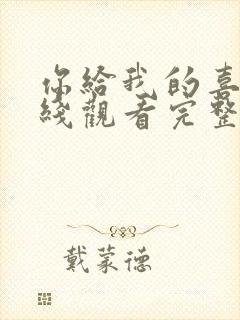 你給我的喜
綫觀看完整
戴蒙德